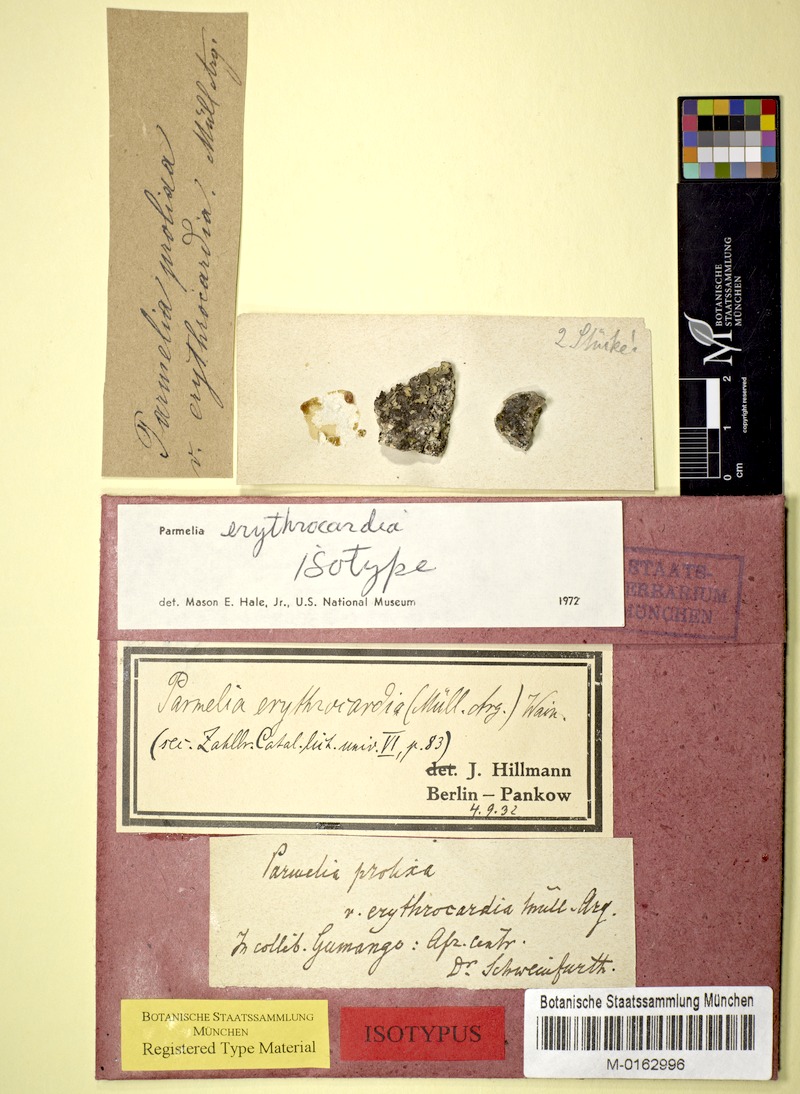 Parmelia prolixa
v. erythrocardia. Müll Arg.
2 Stücke!
BOTANISCHE
STAATSSAMMLUNG
MÜNCHEN
copyright reserved
0 1 2
cm
Parmelia erythrocardia
isotype
det. Mason E. Hale, Jr., U.S. National Museum 1972
STAATS-
HERBARIUM
MÜNCHEN
Parmelia erythrocardia (Müll. Arg.) Wain.
(sec. Zahlbr. Catal. lich. univ. VI, p. 83)
det. J. Hillmann
Berlin – Pankow
4.9.32
Parmelia prolixa
v. erythrocardia Müll. Arg.
In collib. Gumango: Afr. centr.
Dr. Schweinfurth.
BOTANISCHE STAATSSAMMLUNG
MÜNCHEN
Registered Type Material
ISOTYPUS
Botanische Staatssammlung München
M-0162996